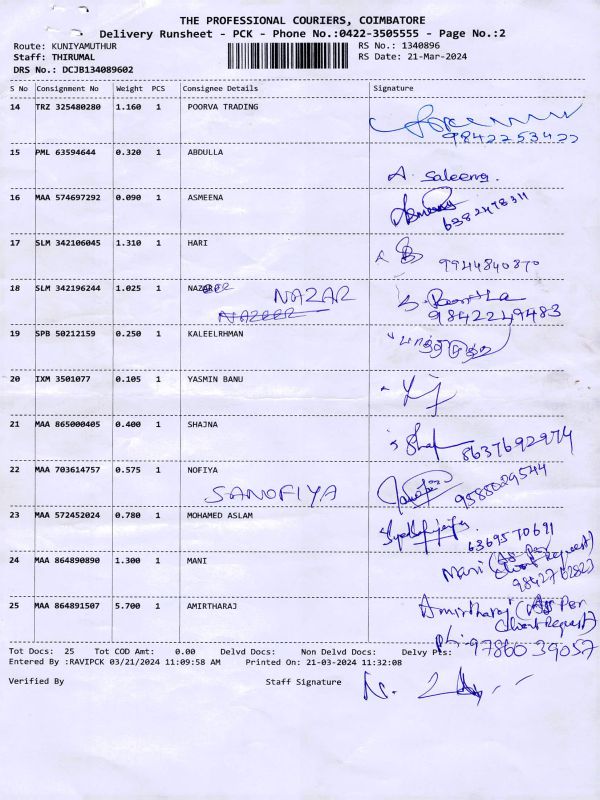 THE PROFESSIONAL COURIERS, COIMBATORE
Delivery Runsheet - PCK - Phone No.:0422-3505555 - Page No.:2
Route: KUNIYAMUTHUR RS No.: 1340896
Staff: THIRUMAL RS Date: 21-Mar-2024
DRS No.: DCJB134089602
S No Consignment No Weight PCS Consignee Details Signature
14 TRZ 325480280 1.160 1 POORVA TRADING
9842253422
15 PML 63594644 0.320 1 ABDULLA
A. Saleena.
16 MAA 574697292 0.090 1 ASMEENA
6382478311
17 SLM 342106045 1.310 1 HARI
9944840870
18 SLM 342196244 1.025 1 NAZAR
NAZEER
9842249483
19 SPB 50212159 0.250 1 KALEELRHMAN
20 IXM 3501077 0.105 1 YASMIN BANU
21 MAA 865000405 0.400 1 SHAJNA
8637692974
22 MAA 703614757 0.575 1 NOFIYA
SANOFIYA 9588029544
23 MAA 572452024 0.780 1 MOHAMED ASLAM
6369570691
24 MAA 864890890 1.300 1 MANI
Mani (As Per
Client Request)
25 MAA 864891507 5.700 1 AMIRTHARAJ
Amirtharaj (As Per
Client Request)
Ph:- 9786039057
Tot Docs: 25 Tot COD Amt: 0.00 Delvd Docs: Non Delvd Docs: Delvy Pts:
Entered By :RAVIPCK 03/21/2024 11:09:58 AM Printed On: 21-03-2024 11:32:08
Verified By Staff Signature